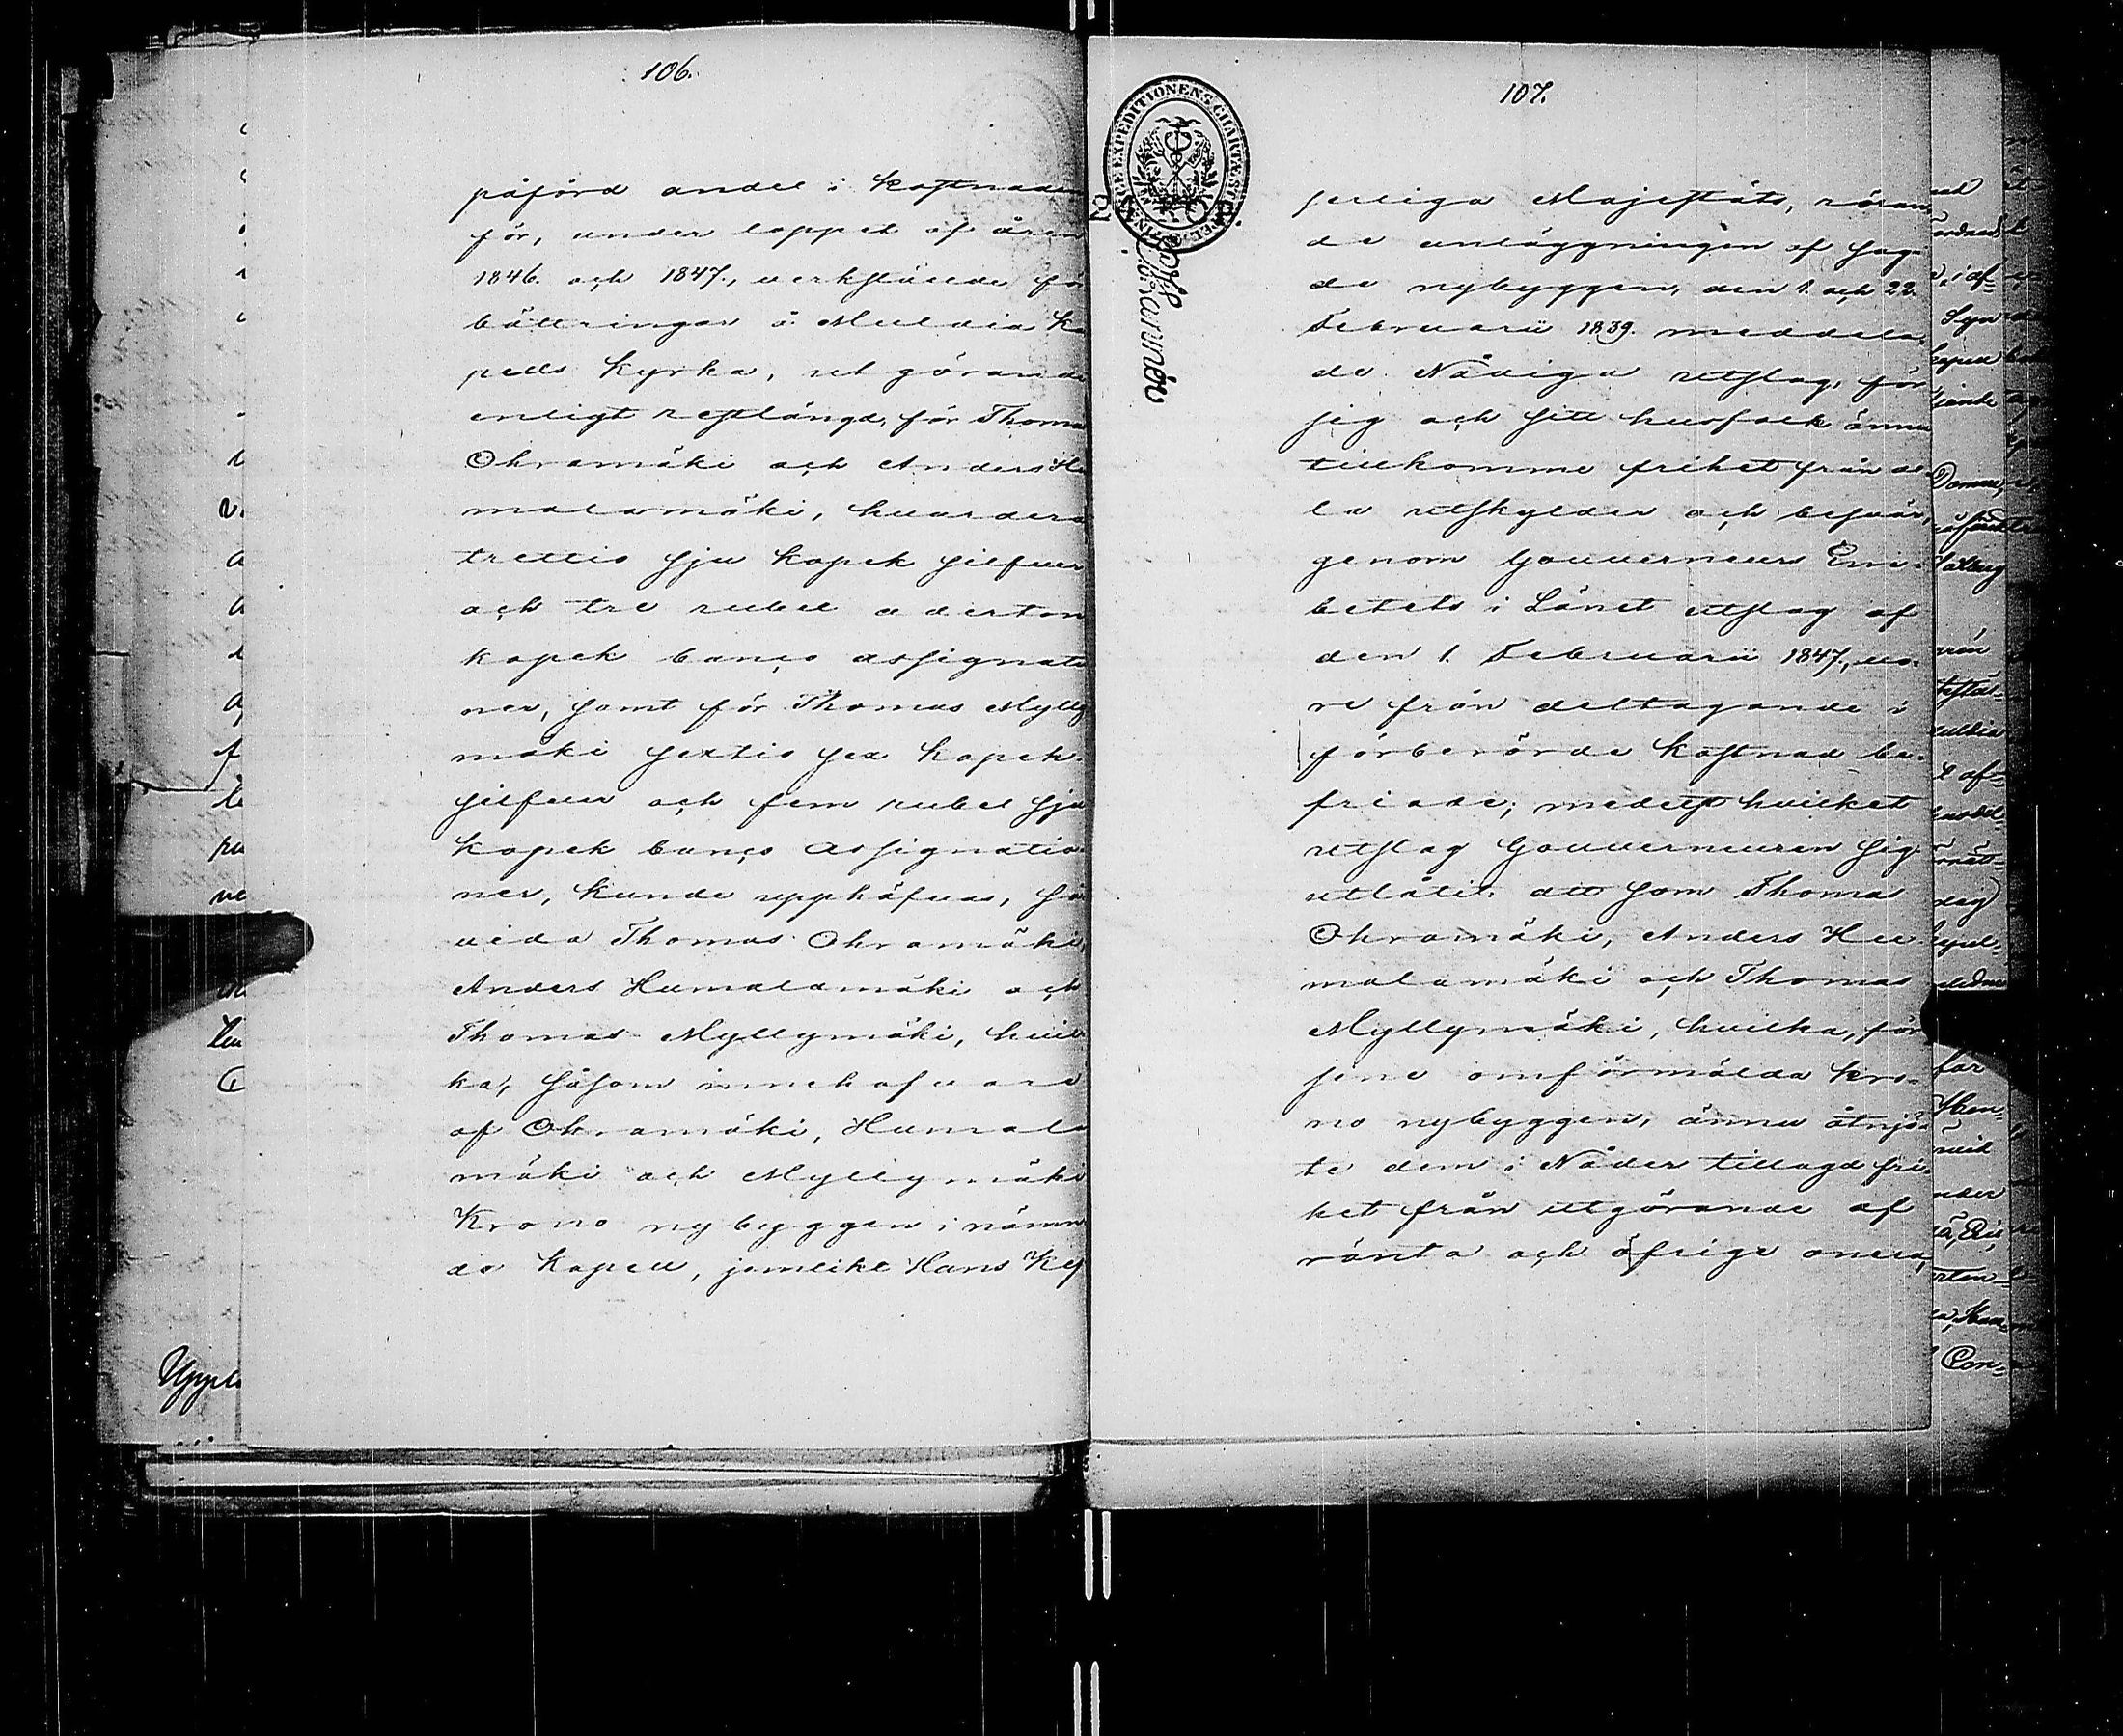 106.
påförd andel i kostnaden
för, under loppet af åren
1846. och 1847., verkstälde för
bättringar å Muldia Ka
pells kyrka, utgörande
enligt restlängd, för Thomas
Ohramäki och Anders Hu
malamäki, hvardera
trettio sju kopek silfver
och tre rubel aderton
kopek banco assignatio
ner, samt för Thomas Mylly
mäki sextio sex kopek
silfver och fem rubel sju
kopek banco assignatio
ner, kunde upphäfvas, så
vida Thomas Ohramäki,
Anders Humalamäki och
Thomas Myllymäki, hvil
ka, såsom innehafvare
af Ohramäki, Humala
mäki och Myllymäki
Krono nybyggen i nämn
da Kapell, jemlikt Hans Kej
107.
FINSKE EXPEDITIONENS CHARTÆ SIGILL
serliga Majestäts, röran-
de anläggningen af sag-
de nybyggen, den 1. och 22.
Februarii 1839. meddela-
de Nådiga utslag, för
sig och sitt husfolk ännu
tillkomme frihet från al-
la utskylder och besvär,
genom Gouverneurs Em-
betets i Länet utslag af
den 1. Februarii 1847., vo-
re från deltagande i
förberörde kostnad be-
friade; medelst hvilket
utslag Gouverneuren sig
utlåtit: att som Thomas
Ohramäki, Anders Hu-
malamäki och Thomas
Myllymäki, hvilka, för
sine omförmälda kro-
no nybyggen, ännu åtnjö-
te dem i Nåder tillagd fri-
het från utgörande af
ränta och öfrige onera,